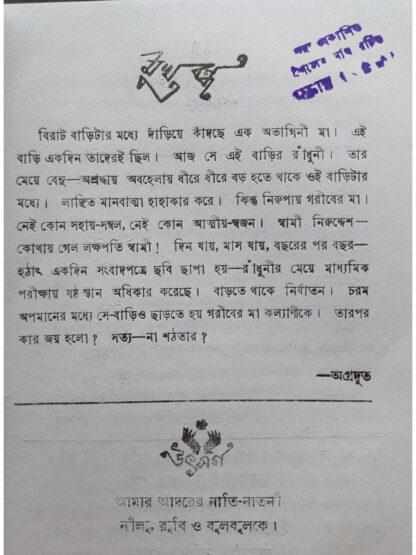 মুখবন্ধ
বিরাট বাড়িটার মধ্যে দাঁড়িয়ে কাঁদছে এক অভাগিনী মা। এই
বাড়ি একদিন তাদেরই ছিল। আজ সে এই বাড়ির রাঁধুনী। তার
মেয়ে বেনু—অশ্রদ্ধায় অবহেলায় ধীরে ধীরে বড় হতে থাকে ওই বাড়িটার
মধ্যে। লাঞ্ছিত মানবাত্মা হাহাকার করে। কিন্তু নিরুপায় গরীবের মা।
নেই কোন সহায়-সম্বল, নেই কোন আত্মীয়-স্বজন। স্বামী নিরুদ্দেশ—
কোথায় গেল লক্ষপতি স্বামী! দিন যায়, মাস যায়, বছরের পর বছর—
হঠাৎ একদিন সংবাদপত্রে ছবি ছাপা হয়—রাঁধুনীর মেয়ে মাধ্যমিক
পরীক্ষায় ষষ্ঠ স্থান অধিকার করেছে। বাড়তে থাকে নির্যাতন। চরম
অপমানের মধ্যে সে-বাড়িও ছাড়তে হয় গরীবের মা কল্যাণীকে। তারপর
কার জয় হলো? সত্য—না শঠতার?
—অগ্রদূত
উৎসর্গ
আমার আদরের নাতি-নাতনী
নীলু, রুবি ও বুলবুলকে।